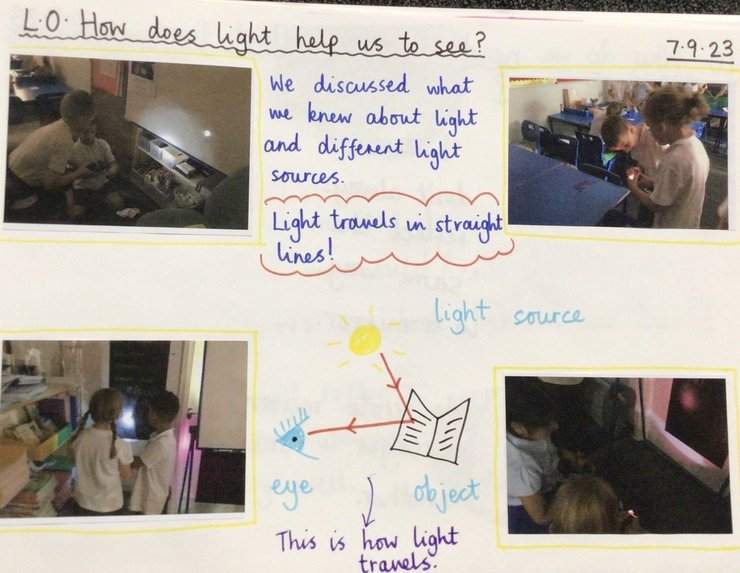 L.O. How does light help us to see?
7.9.23
We discussed what
we knew about light
and different light
sources.
Light travels in straight
lines!
light source
eye
object
This is how light
travels.